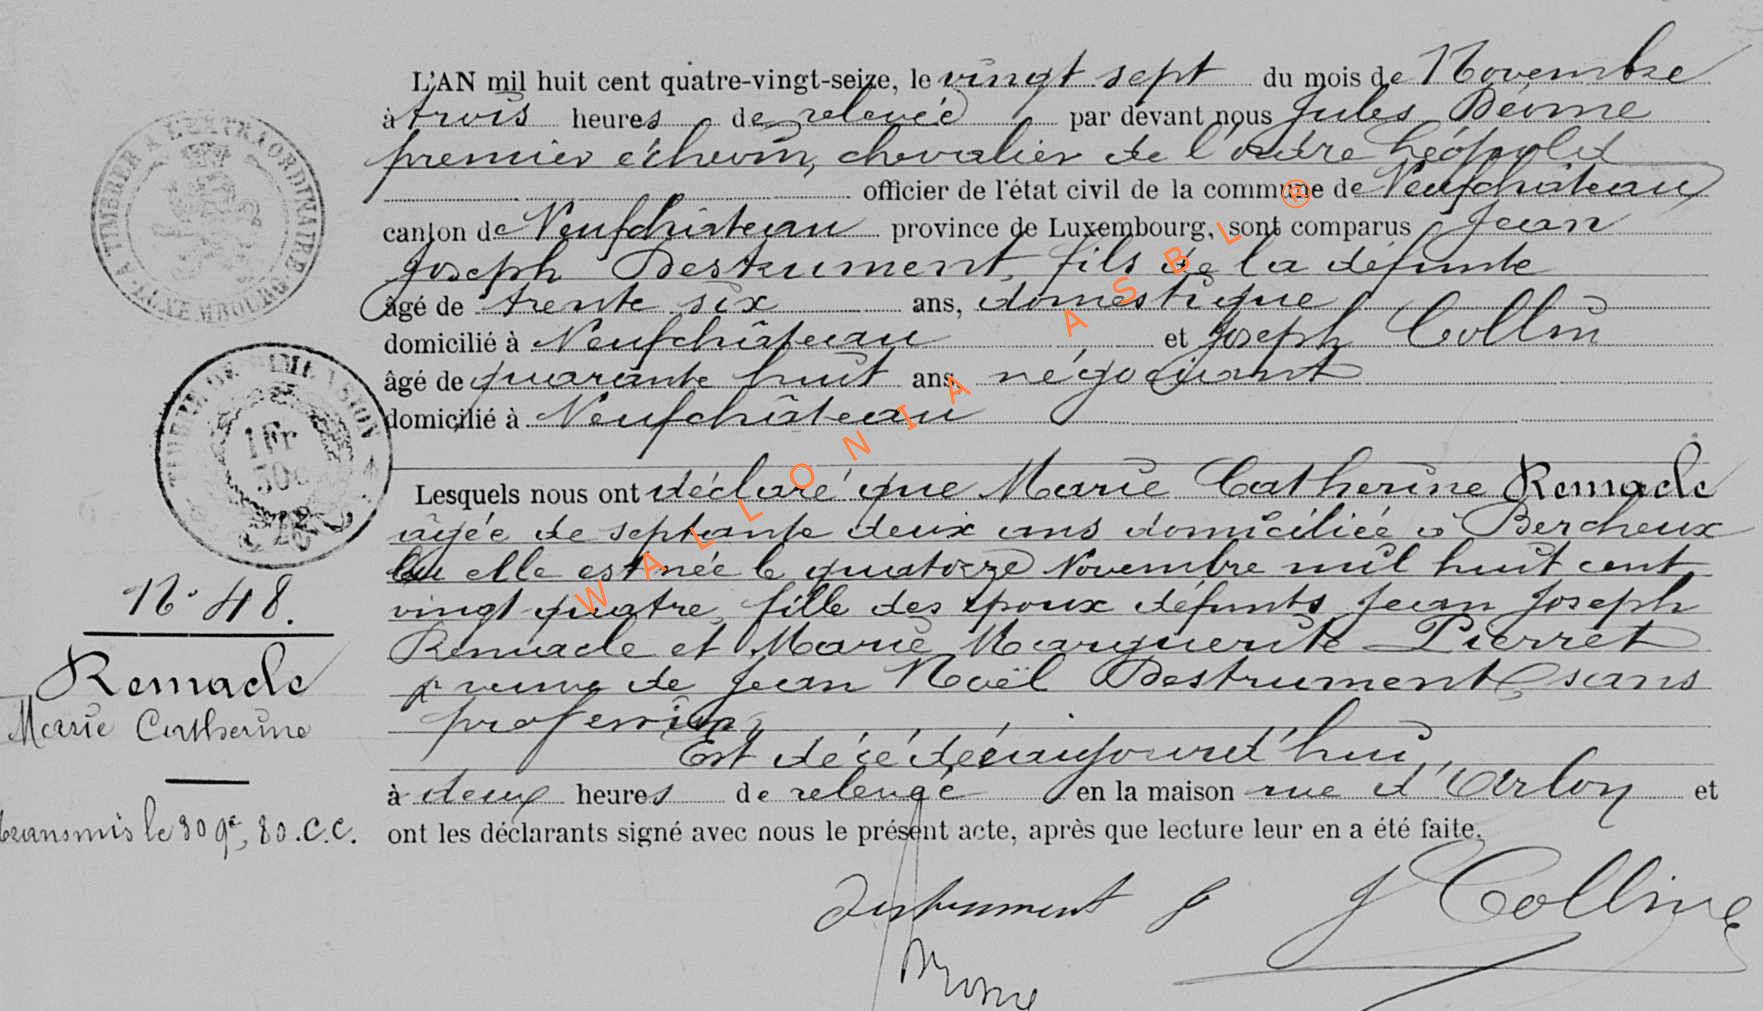 L'AN mil huit cent quatre-vingt-seize, le vingt sept du mois de Novembre
à trois heures de relevée par devant nous Jules
premier échevin, chevalier de l'ordre Léopold
officier de l'état civil de la commune de Neufchâteau
canton de Neufchâteau province de Luxembourg, sont comparus Jean
Joseph Destrument, fils de la défunte
âgé de trente six ans, domestique
domicilié à Neufchâteau et Joseph Collin
âgé de quarante huit ans, négociant
domicilié à Neufchâteau
Lesquels nous ont déclaré que Marie Catherine Remacle
âgée de septante deux ans domiciliée à Bercheux
elle est née le quatorze Novembre mil huit cent
vingt quatre, fille des époux défunts Jean Joseph
Remacle et Marie Marguerite Pierret
veuve de Jean Noël Destrument, sans
profession,
Est décédée aujourd'hui,
à deux heures de relevée en la maison rue d'Arlon et
ont les déclarants signé avec nous le présent acte, après que lecture leur en a été faite.
Destrument J J Collin
TIMBRER A L'EXTRAORDINAIRE
LUXEMBOURG
TIMBRE DE DIMENSION
1 Fr
30c
N° 48.
Remacle
Marie Catherine
transmis le 30 9re, 80.C.C.
WALLONIA ASBL ®